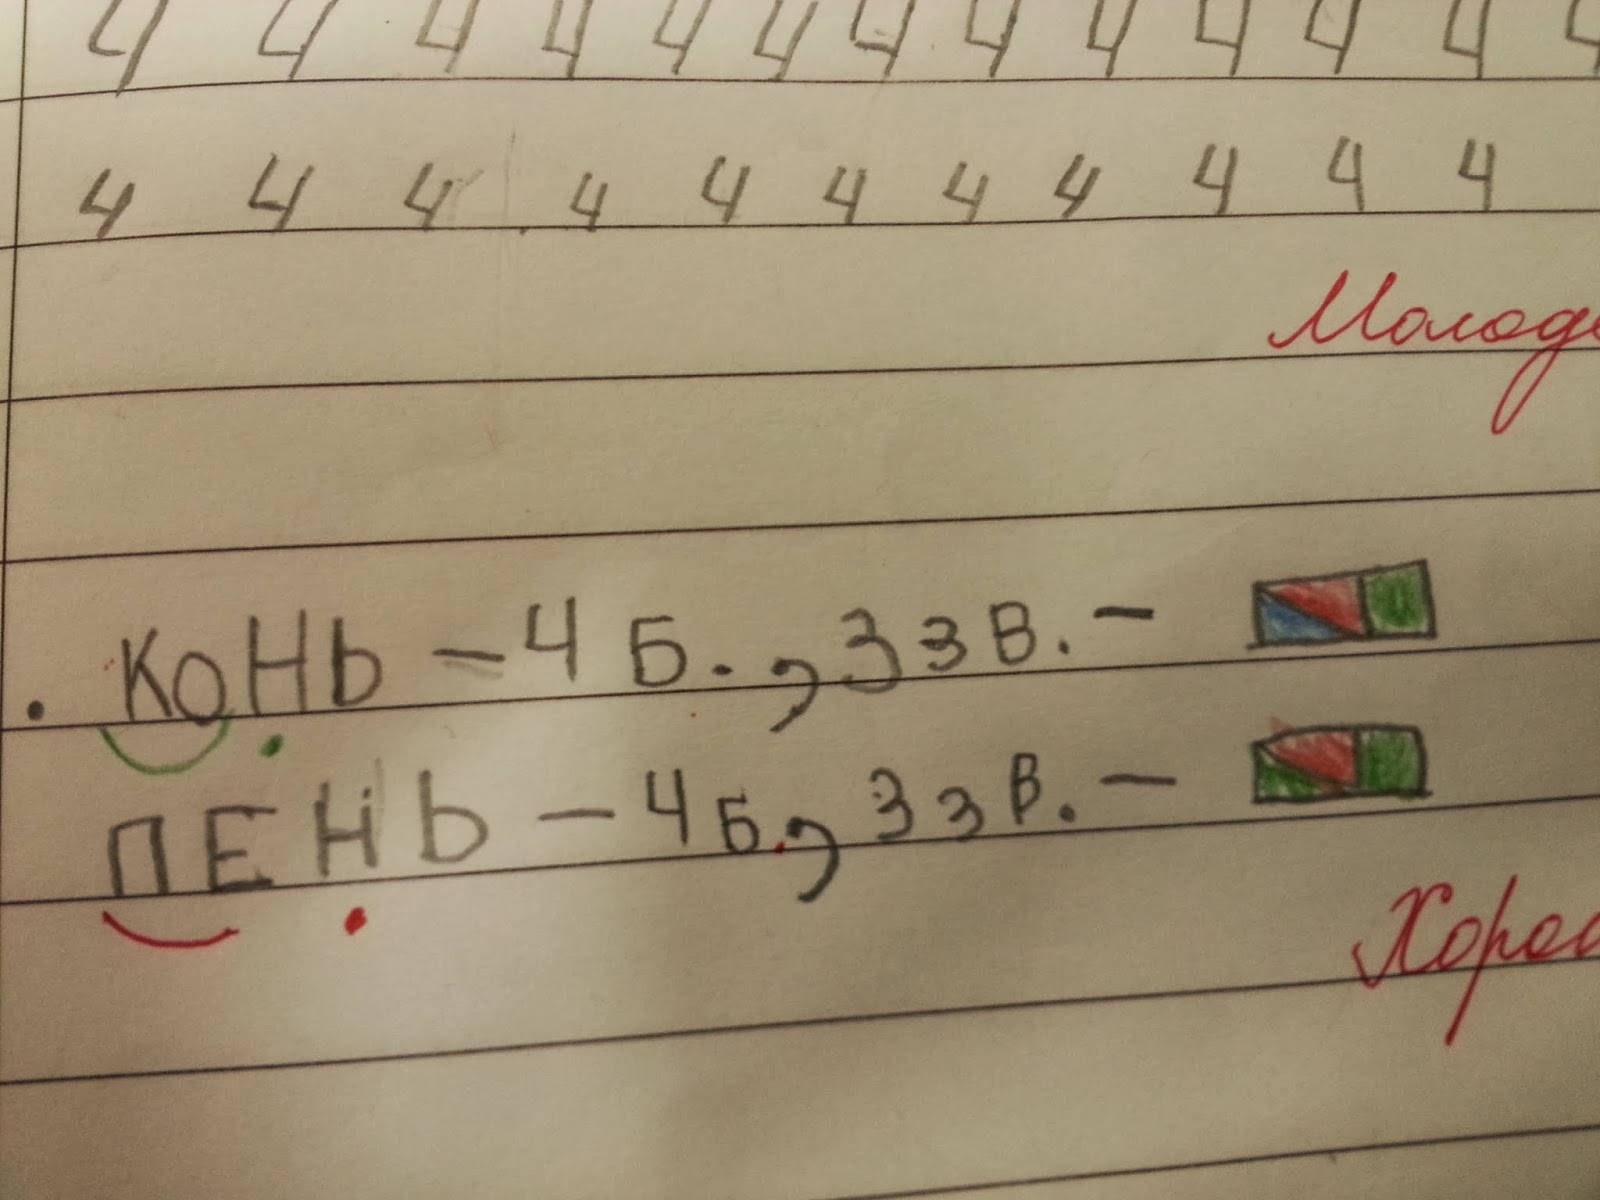 4 4 4 4 4 4 4 4 4 4 4 4 4
4 4 4 4 4 4 4 4 4 4 4
Молод
. КОНЬ – 4 Б., 3 зв. –
ПЕНЬ – 4 Б., 3 зв. –
Хоро